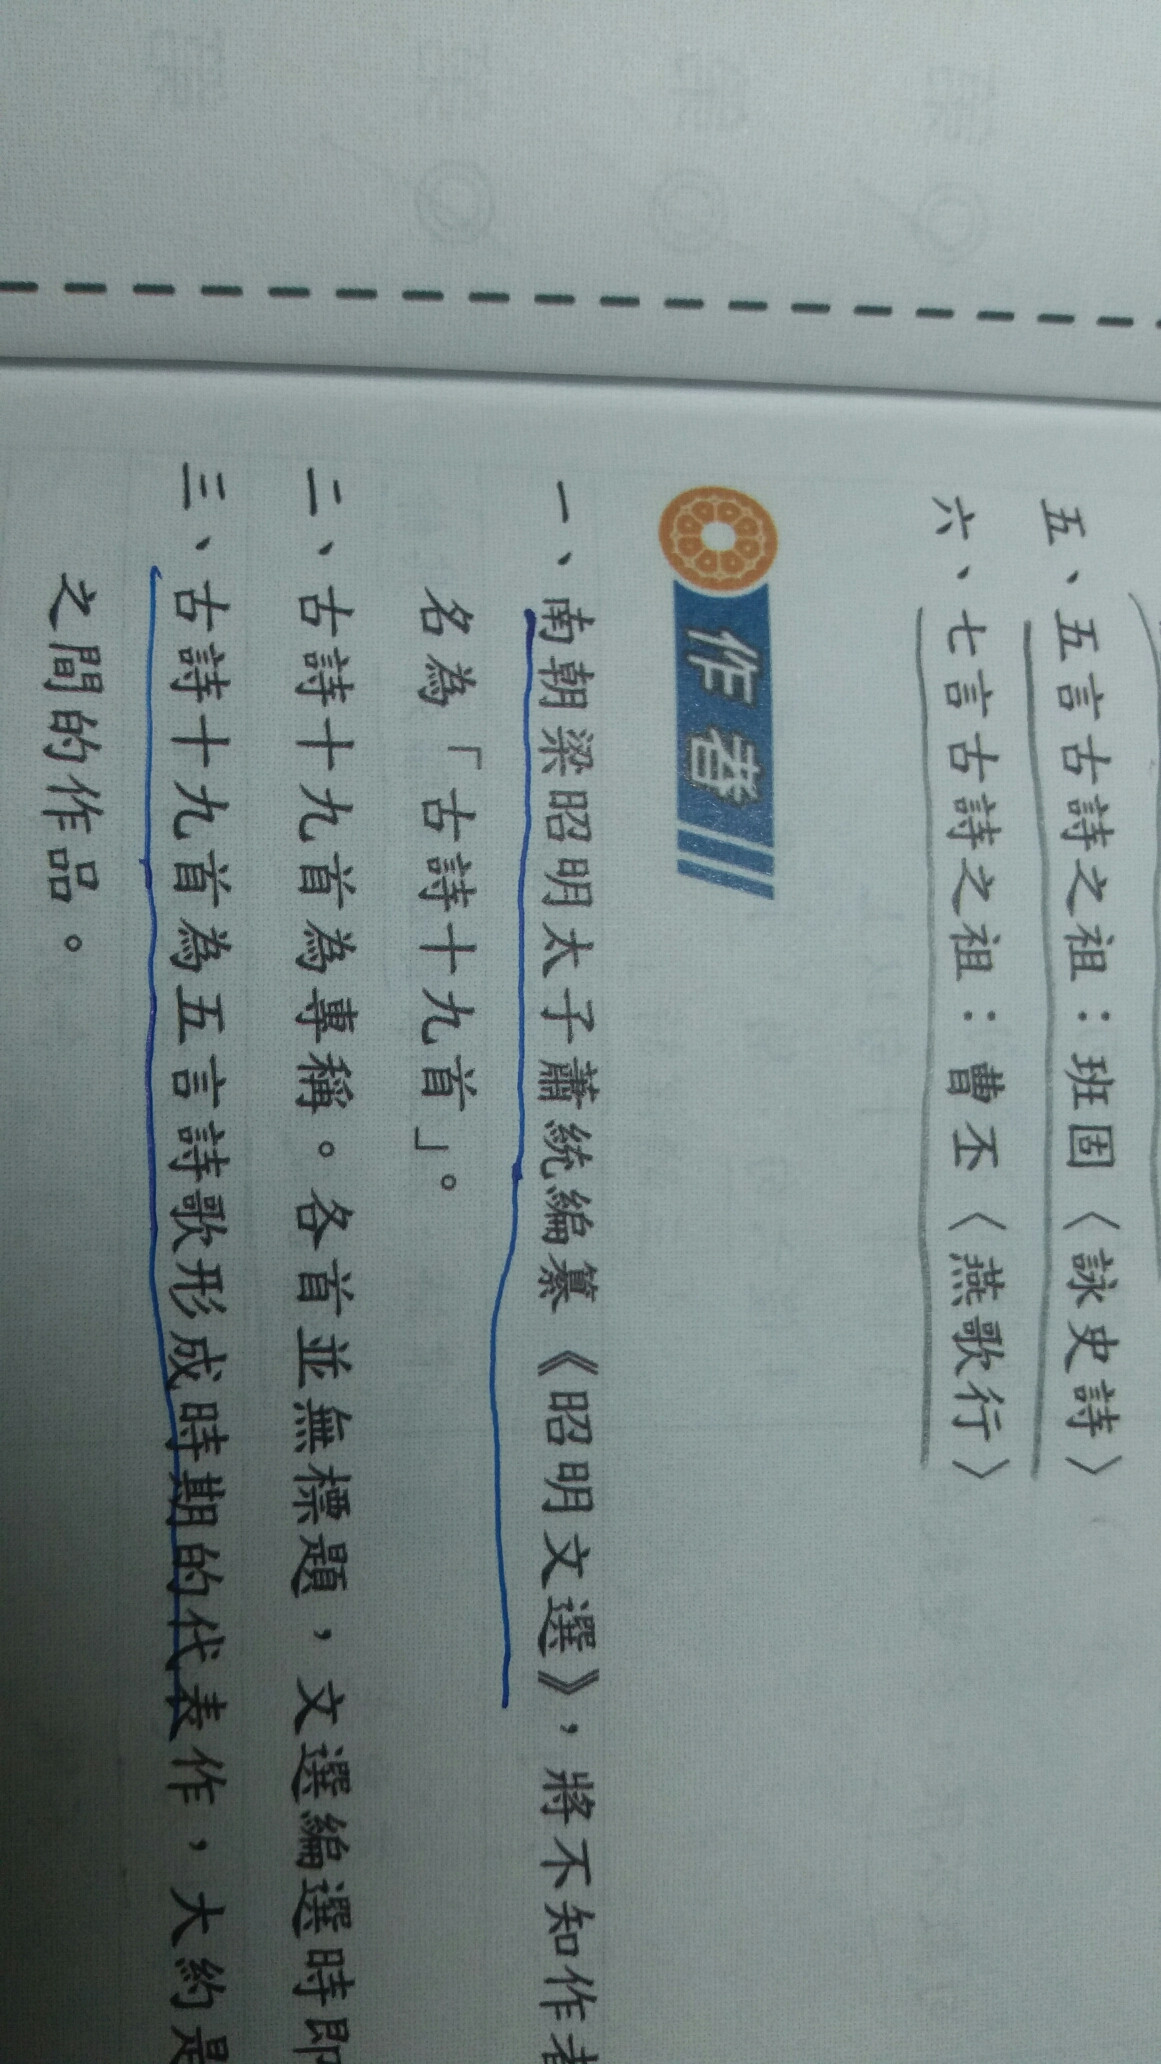 五、五言古詩之祖：班固〈詠史詩〉
六、七言古詩之祖：曹丕〈燕歌行〉
作者
一、南朝梁昭明太子蕭統編纂《昭明文選》，將不知作者
名為「古詩十九首」。
二、古詩十九首為專稱。各首並無標題，文選編選時即
三、古詩十九首為五言詩歌形成時期的代表作，大約是
之間的作品。